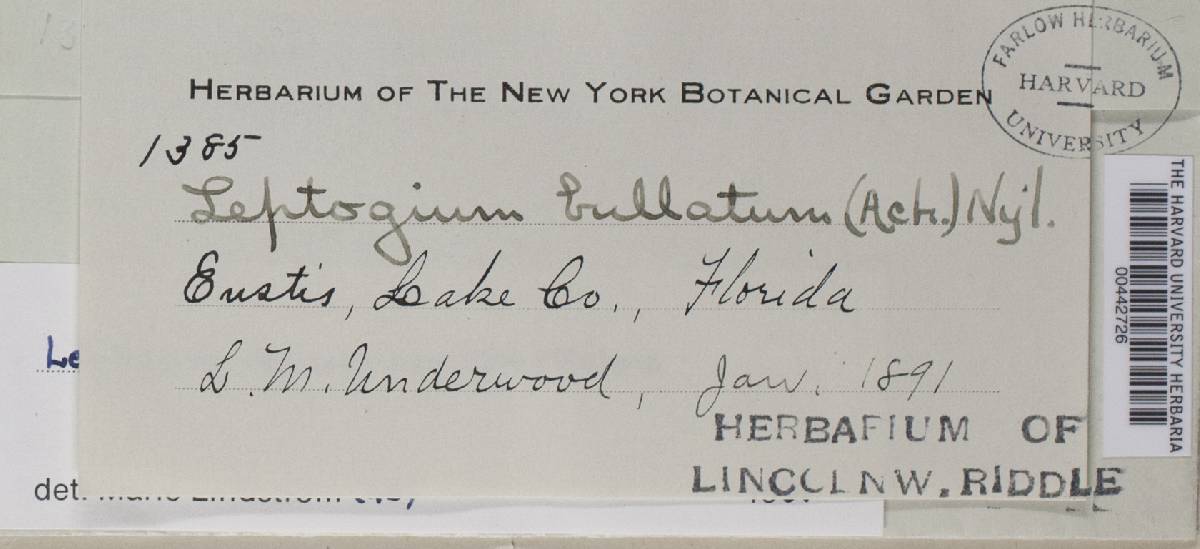 13
FARLOW HERBARIUM
HARVARD
UNIVERSITY
HERBARIUM OF THE NEW YORK BOTANICAL GARDEN
1385
Leptogium bullatum (Ach.) Nyl.
Eustis, Lake Co., Florida
L. M. Underwood, Jan. 1891
HERBARIUM OF
LINCOLN W. RIDDLE
THE HARVARD UNIVERSITY HERBARIA
00442726
Le
det.